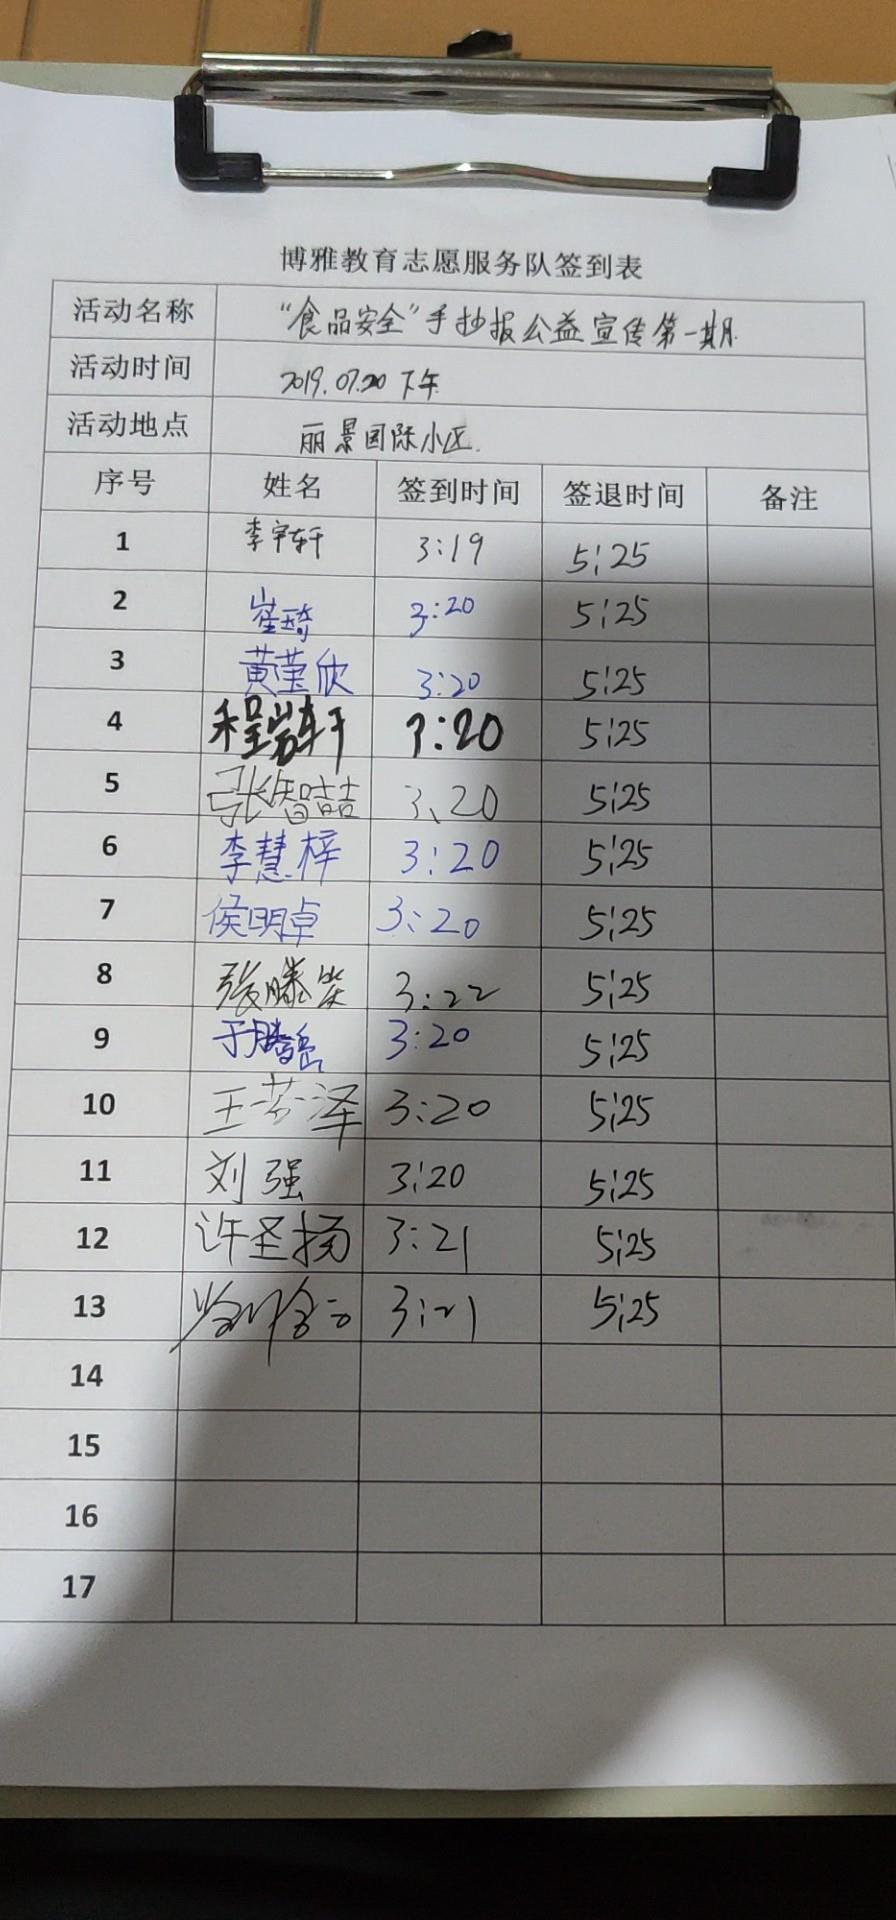 博雅教育志愿服务队签到表
活动名称 “食品安全”手抄报公益宣传第一期
活动时间 2019.07.20 下午
活动地点 丽景国际小区.
序号 姓名 签到时间 签退时间 备注
1 李宇轩 3:19 5:25
2 崔琦 3:20 5:25
3 黄莹欣 3:20 5:25
4 程岩轩 3:20 5:25
5 张智喆 3:20 5:25
6 李慧梓 3:20 5:25
7 侯明卓 3:20 5:25
8 张滕 3:22 5:25
9 于腾岳 3:20 5:25
10 王芳泽 3:20 5:25
11 刘强 3:20 5:25
12 许圣扬 3:21 5:25
13 3:21 5:25
14
15
16
17